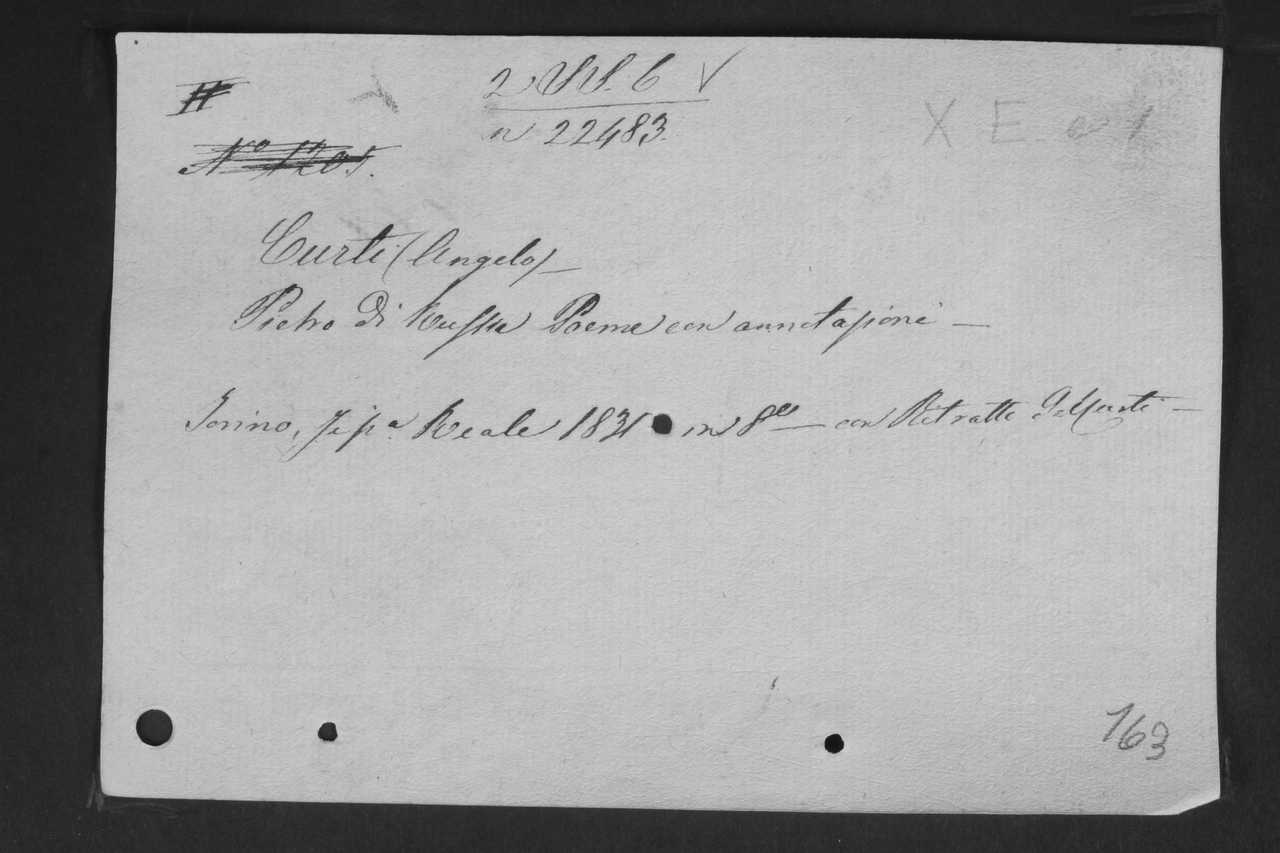 2 SS. 6 V
n 22483.
X E
N.º 1205.
Curti (Angelo) —
Pietro di Russia Poema con annotazioni —
Torino, Tip.ª Reale 1831 in 8º — con Ritratto
163